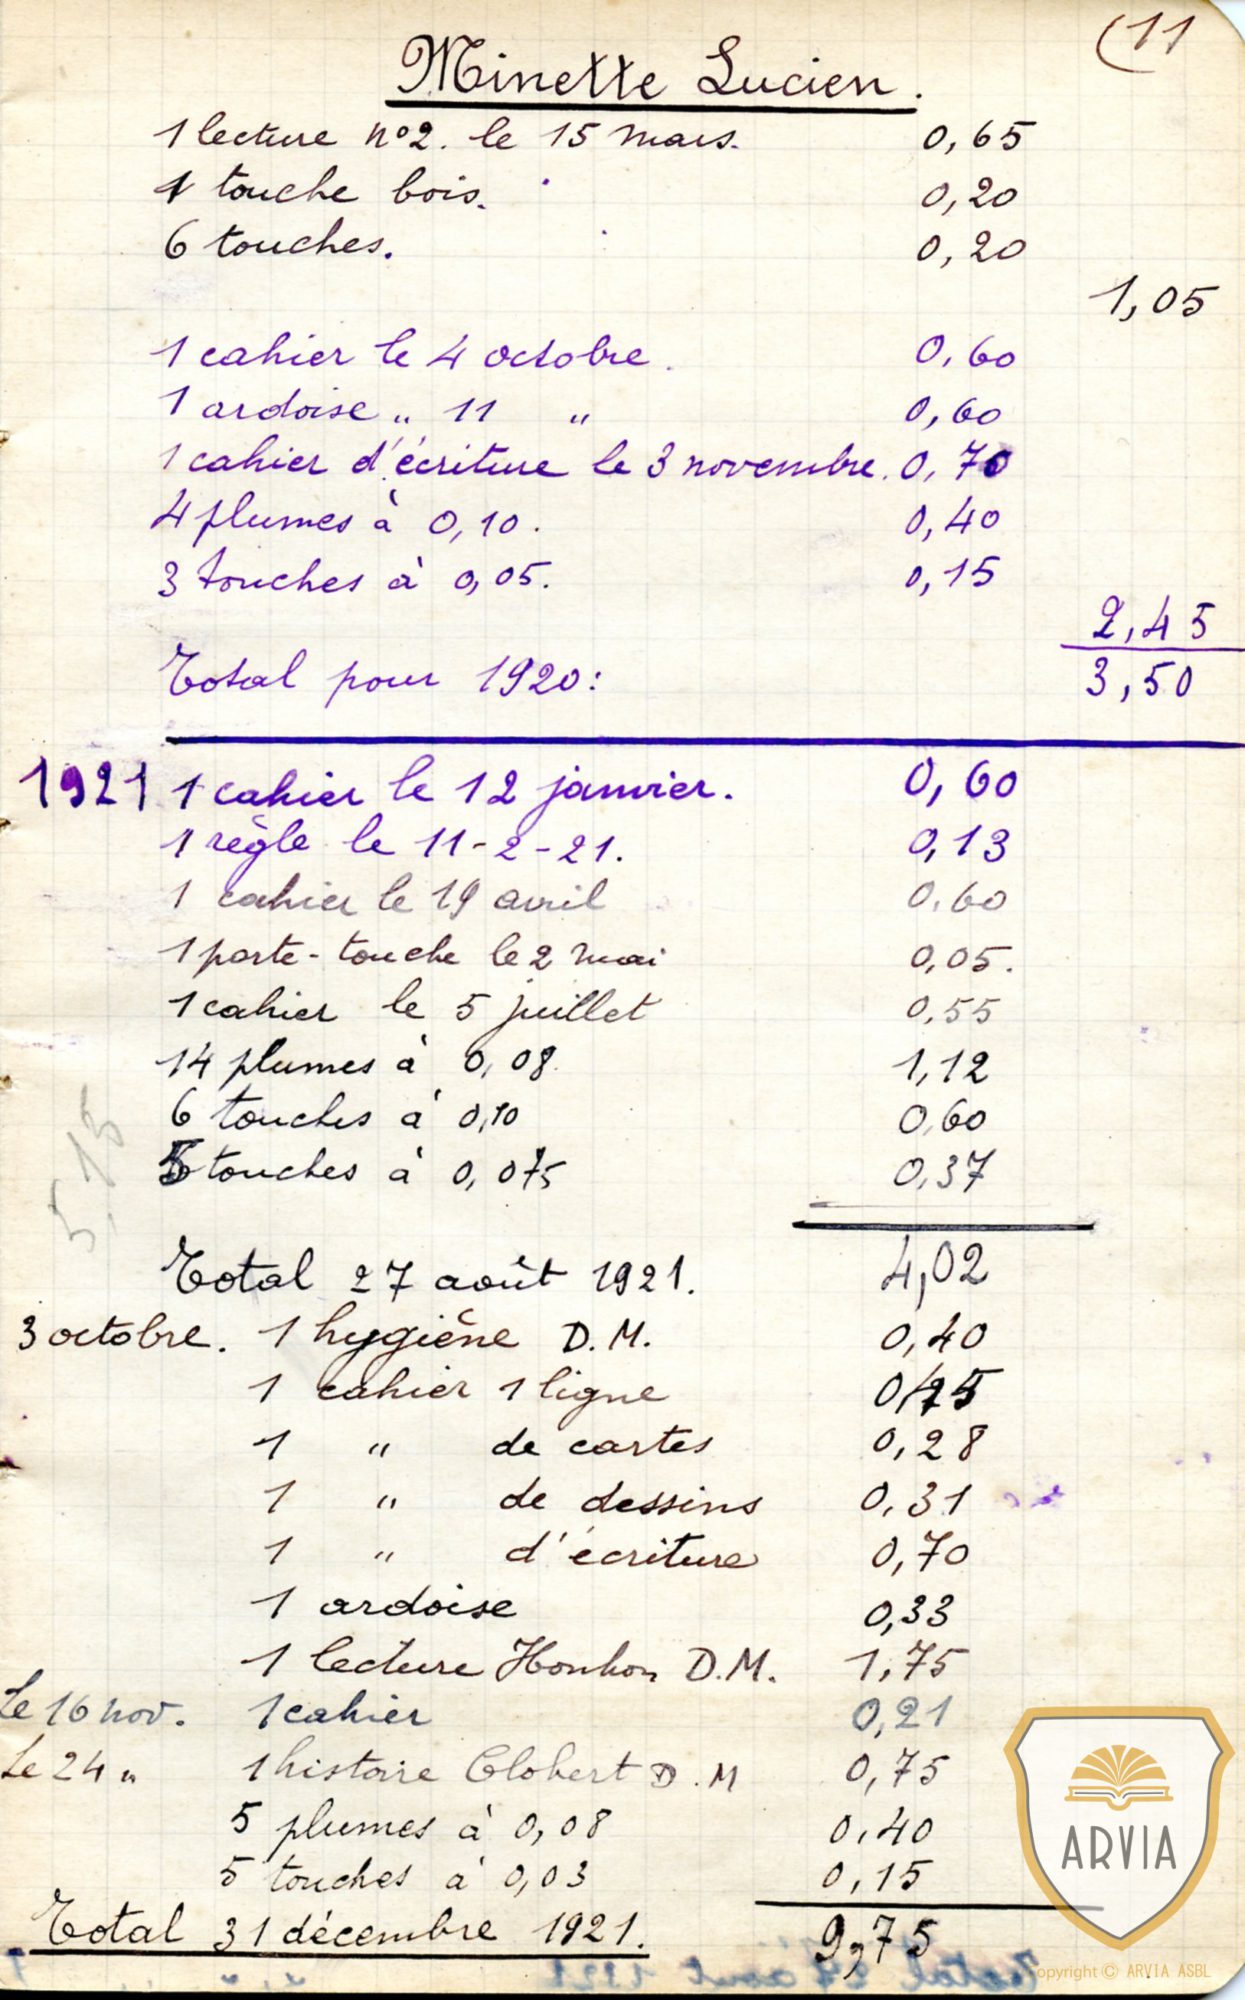 (11
Minette Lucien.
1 lecture n°2. le 15 mars. 0,65
1 touche bois. 0,20
6 touches. 0,20
1,05
1 cahier le 4 octobre. 0,60
1 ardoise " 11 " 0,60
1 cahier d'écriture le 3 novembre. 0,70
4 plumes à 0,10. 0,40
3 touches à 0,05. 0,15
2,45
Total pour 1920: 3,50
1921 1 cahier le 12 janvier. 0,60
1 règle le 11-2-21. 0,13
1 cahier le 19 avril 0,60
1 porte-touche le 2 mai 0,05.
1 cahier le 5 juillet 0,55
14 plumes à 0,08 1,12
6 touches à 0,10 0,60
5 touches à 0,075 0,37
Total 27 août 1921. 4,02
3 octobre. 1 hygiène D.M. 0,40
1 cahier 1 ligne 0,45
1 " de cartes 0,28
1 " de dessins 0,31
1 " d'écriture 0,70
1 ardoise 0,33
1 lecture Honhon D.M. 1,75
Le 16 nov. 1 cahier 0,21
Le 24 " 1 histoire Clobert D.M 0,75
5 plumes à 0,08 0,40
5 touches à 0,03 0,15
Total 31 décembre 1921. 9,75
ARVIA
opyright © ARVIA ASBL